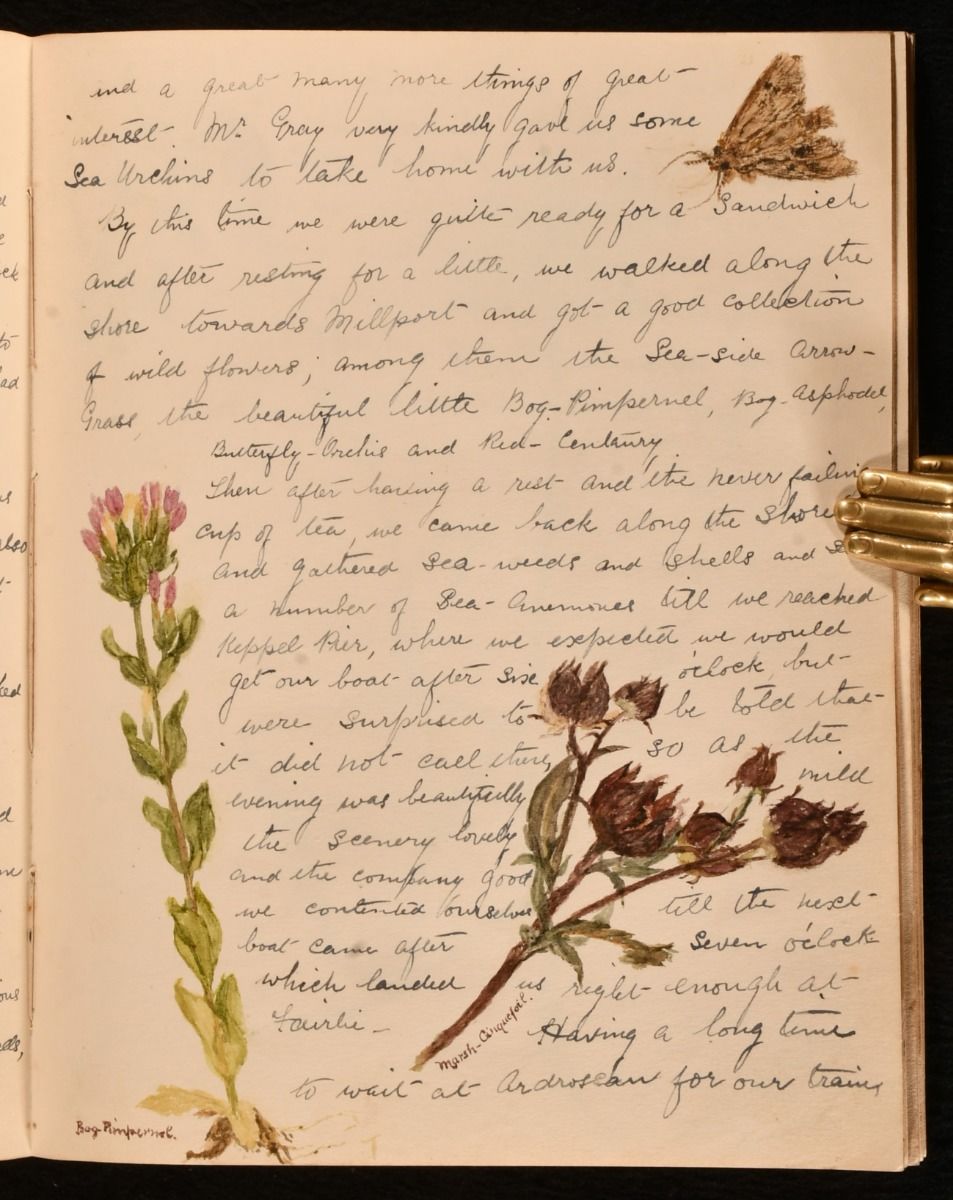 and a great many more things of great
interest. Mr Gray very kindly gave us some
Sea Urchins to take home with us.
By this time we were quite ready for a Sandwich
and after resting for a little, we walked along the
shore towards Millport and got a good collection
of wild flowers; among them the Sea-side Arrow-
Grass, the beautiful little Bog-Pimpernel, Bog-Asphodel,
Butterfly-Orchis and Red-Centaury
Then after having a rest and the never failing
cup of tea, we came back along the shore
and gathered Sea-weeds and shells and
a number of Sea-Anemones till we reached
Keppel Pier, where we expected we would
get our boat after six o'clock, but
were surprised to be told that
it did not call there, so as the
evening was beautifully mild
the scenery lovely
and the company good
we contented ourselves till the next
boat came after seven o'clock
which landed us right enough at
Fairlie - Having a long time
to wait at Ardrossan for our train,
Marsh-Cinquefoil.
Bog-Pimpernel.